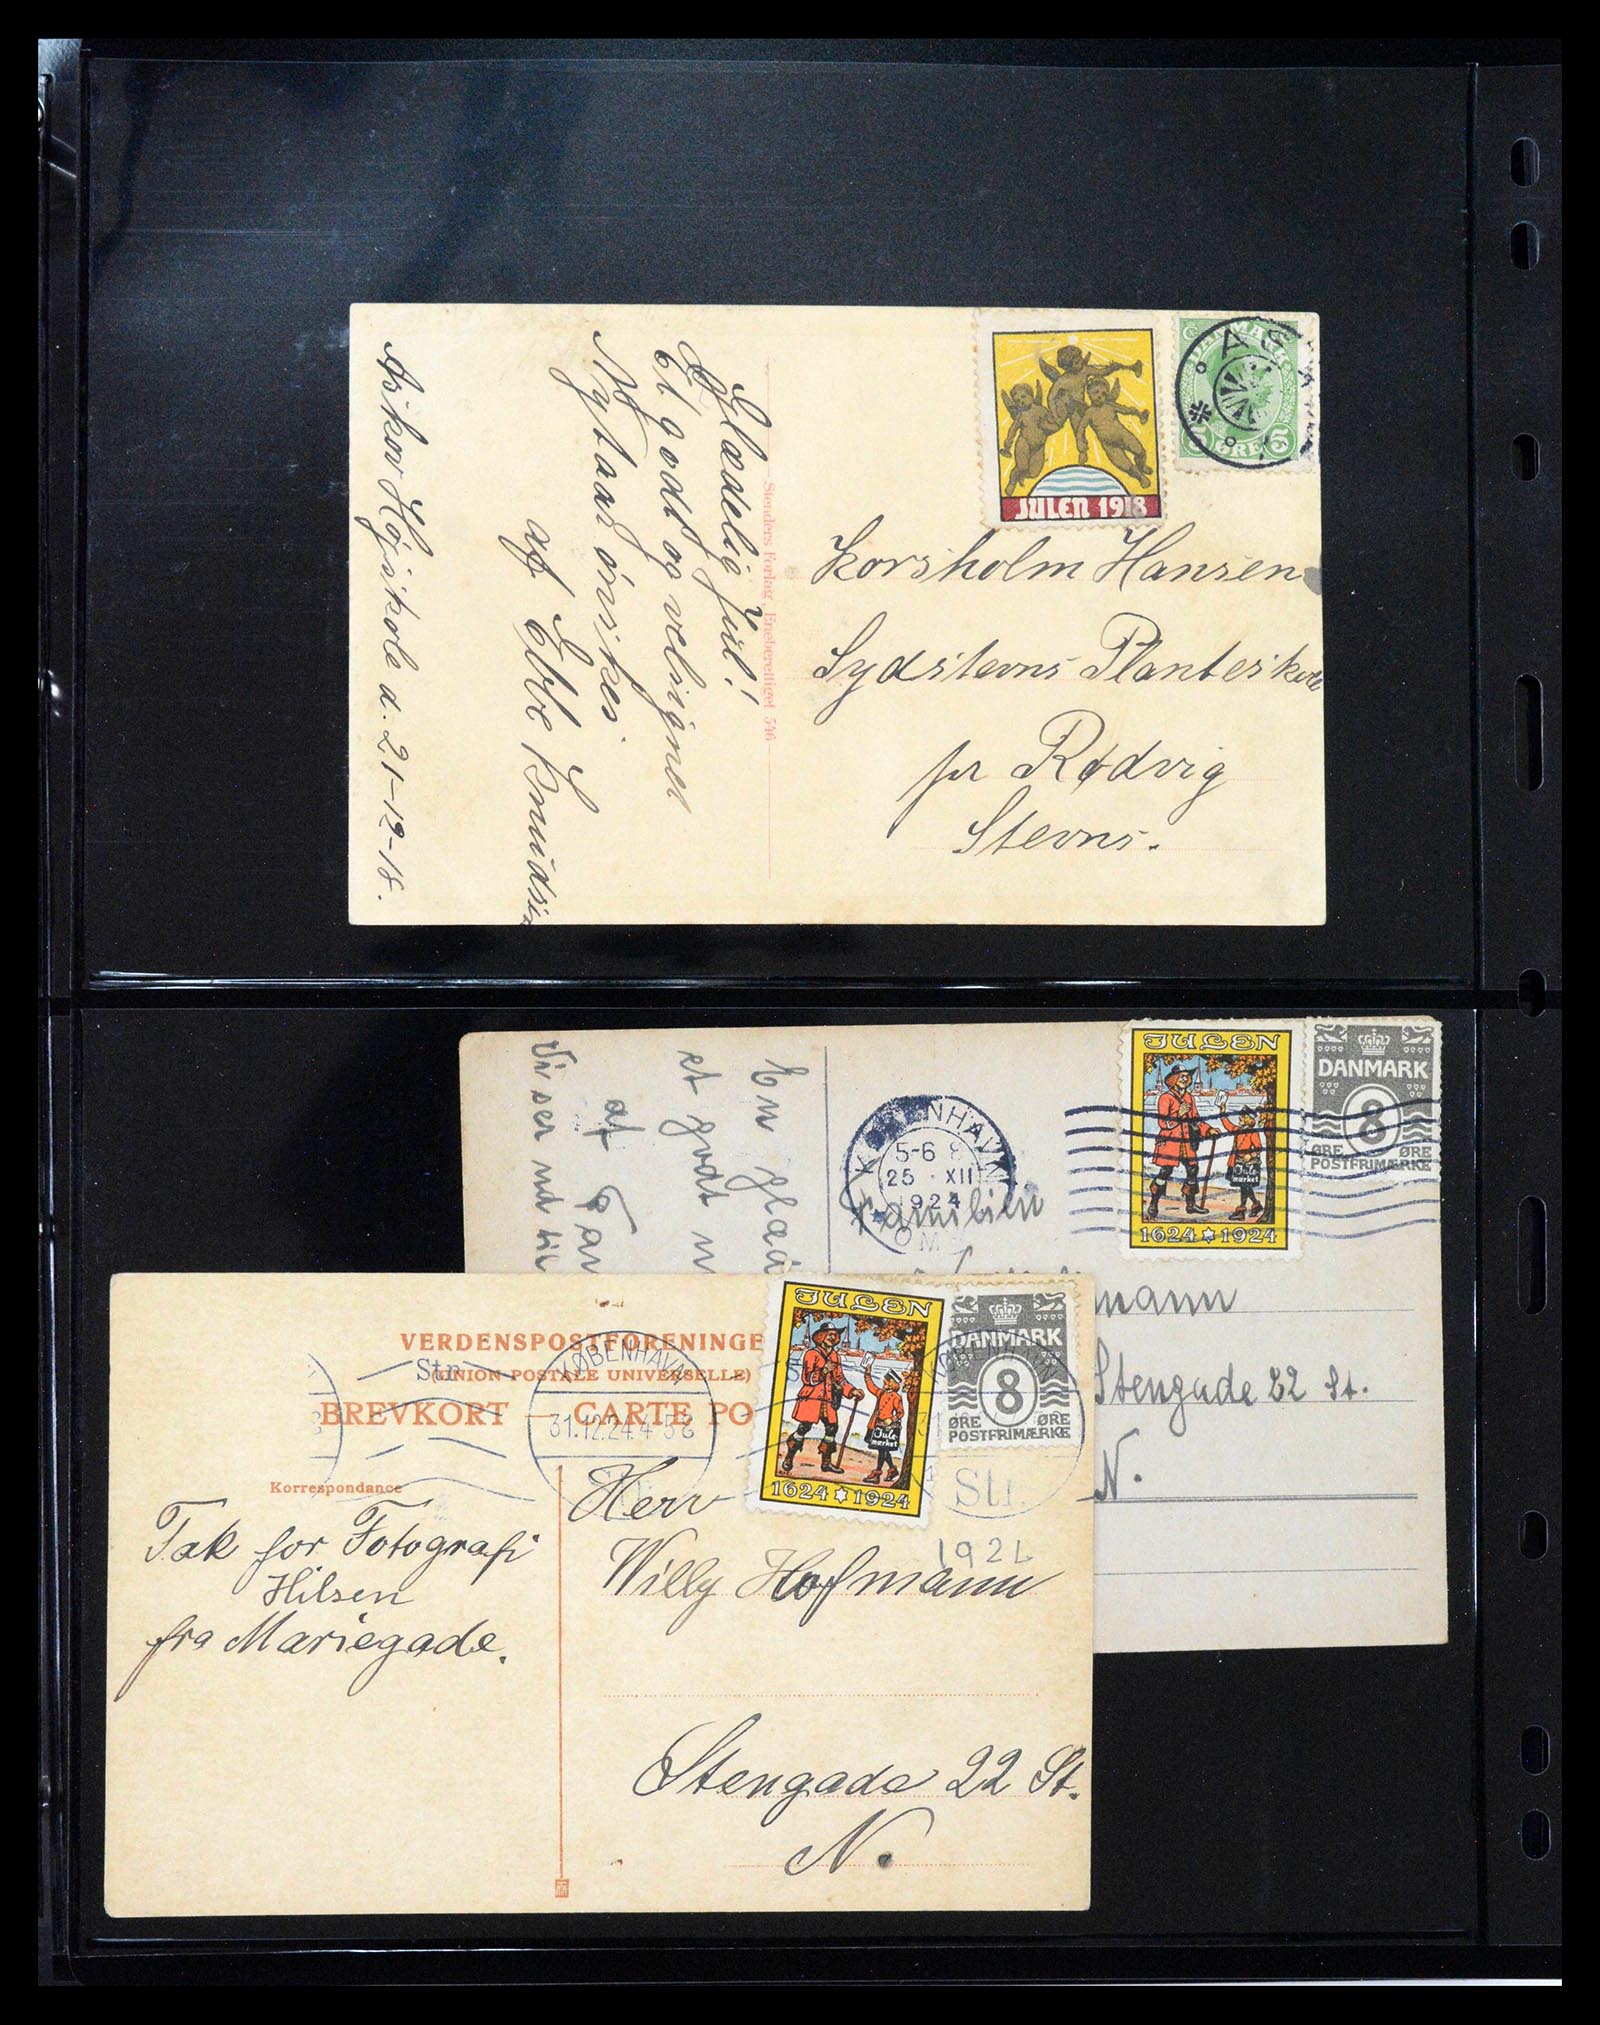 JULEN 1918
DANMARK
5 ØRE 5
Korsholm Hansen
Sydstevns Planteskole
pr Rødvig
Stevns.
Glædelig Jul!
Et godt og velsignet
Nytaar ønskes
af Ebbe
Askov Højskole d. 21-12-18.
Stenders Forlag Eneberettiget 546
JULEN
Jule-
mærket
1624 1924
DANMARK
8
ØRE ØRE
POSTFRIMÆRKE
KØBENHAVN
5-6 E
25 XII
1924
OMK
En glæd
et godt n
af Fam
Vi ser ind til
Familien
mann
Stengade 22 St.
N.
VERDENSPOSTFORENINGE
(UNION POSTALE UNIVERSELLE)
BREVKORT — CARTE PO
Korrespondance
KØBENHAVN
31.12.24.4-5 E
Str.
JULEN
Jule-
mærket
1624 1924
DANMARK
8
ØRE ØRE
POSTFRIMÆRKE
Str.
Tak for Fotografi
Hilsen
fra Mariegade.
Herr
Willy Hofmann
Stengade 22 St.
N.